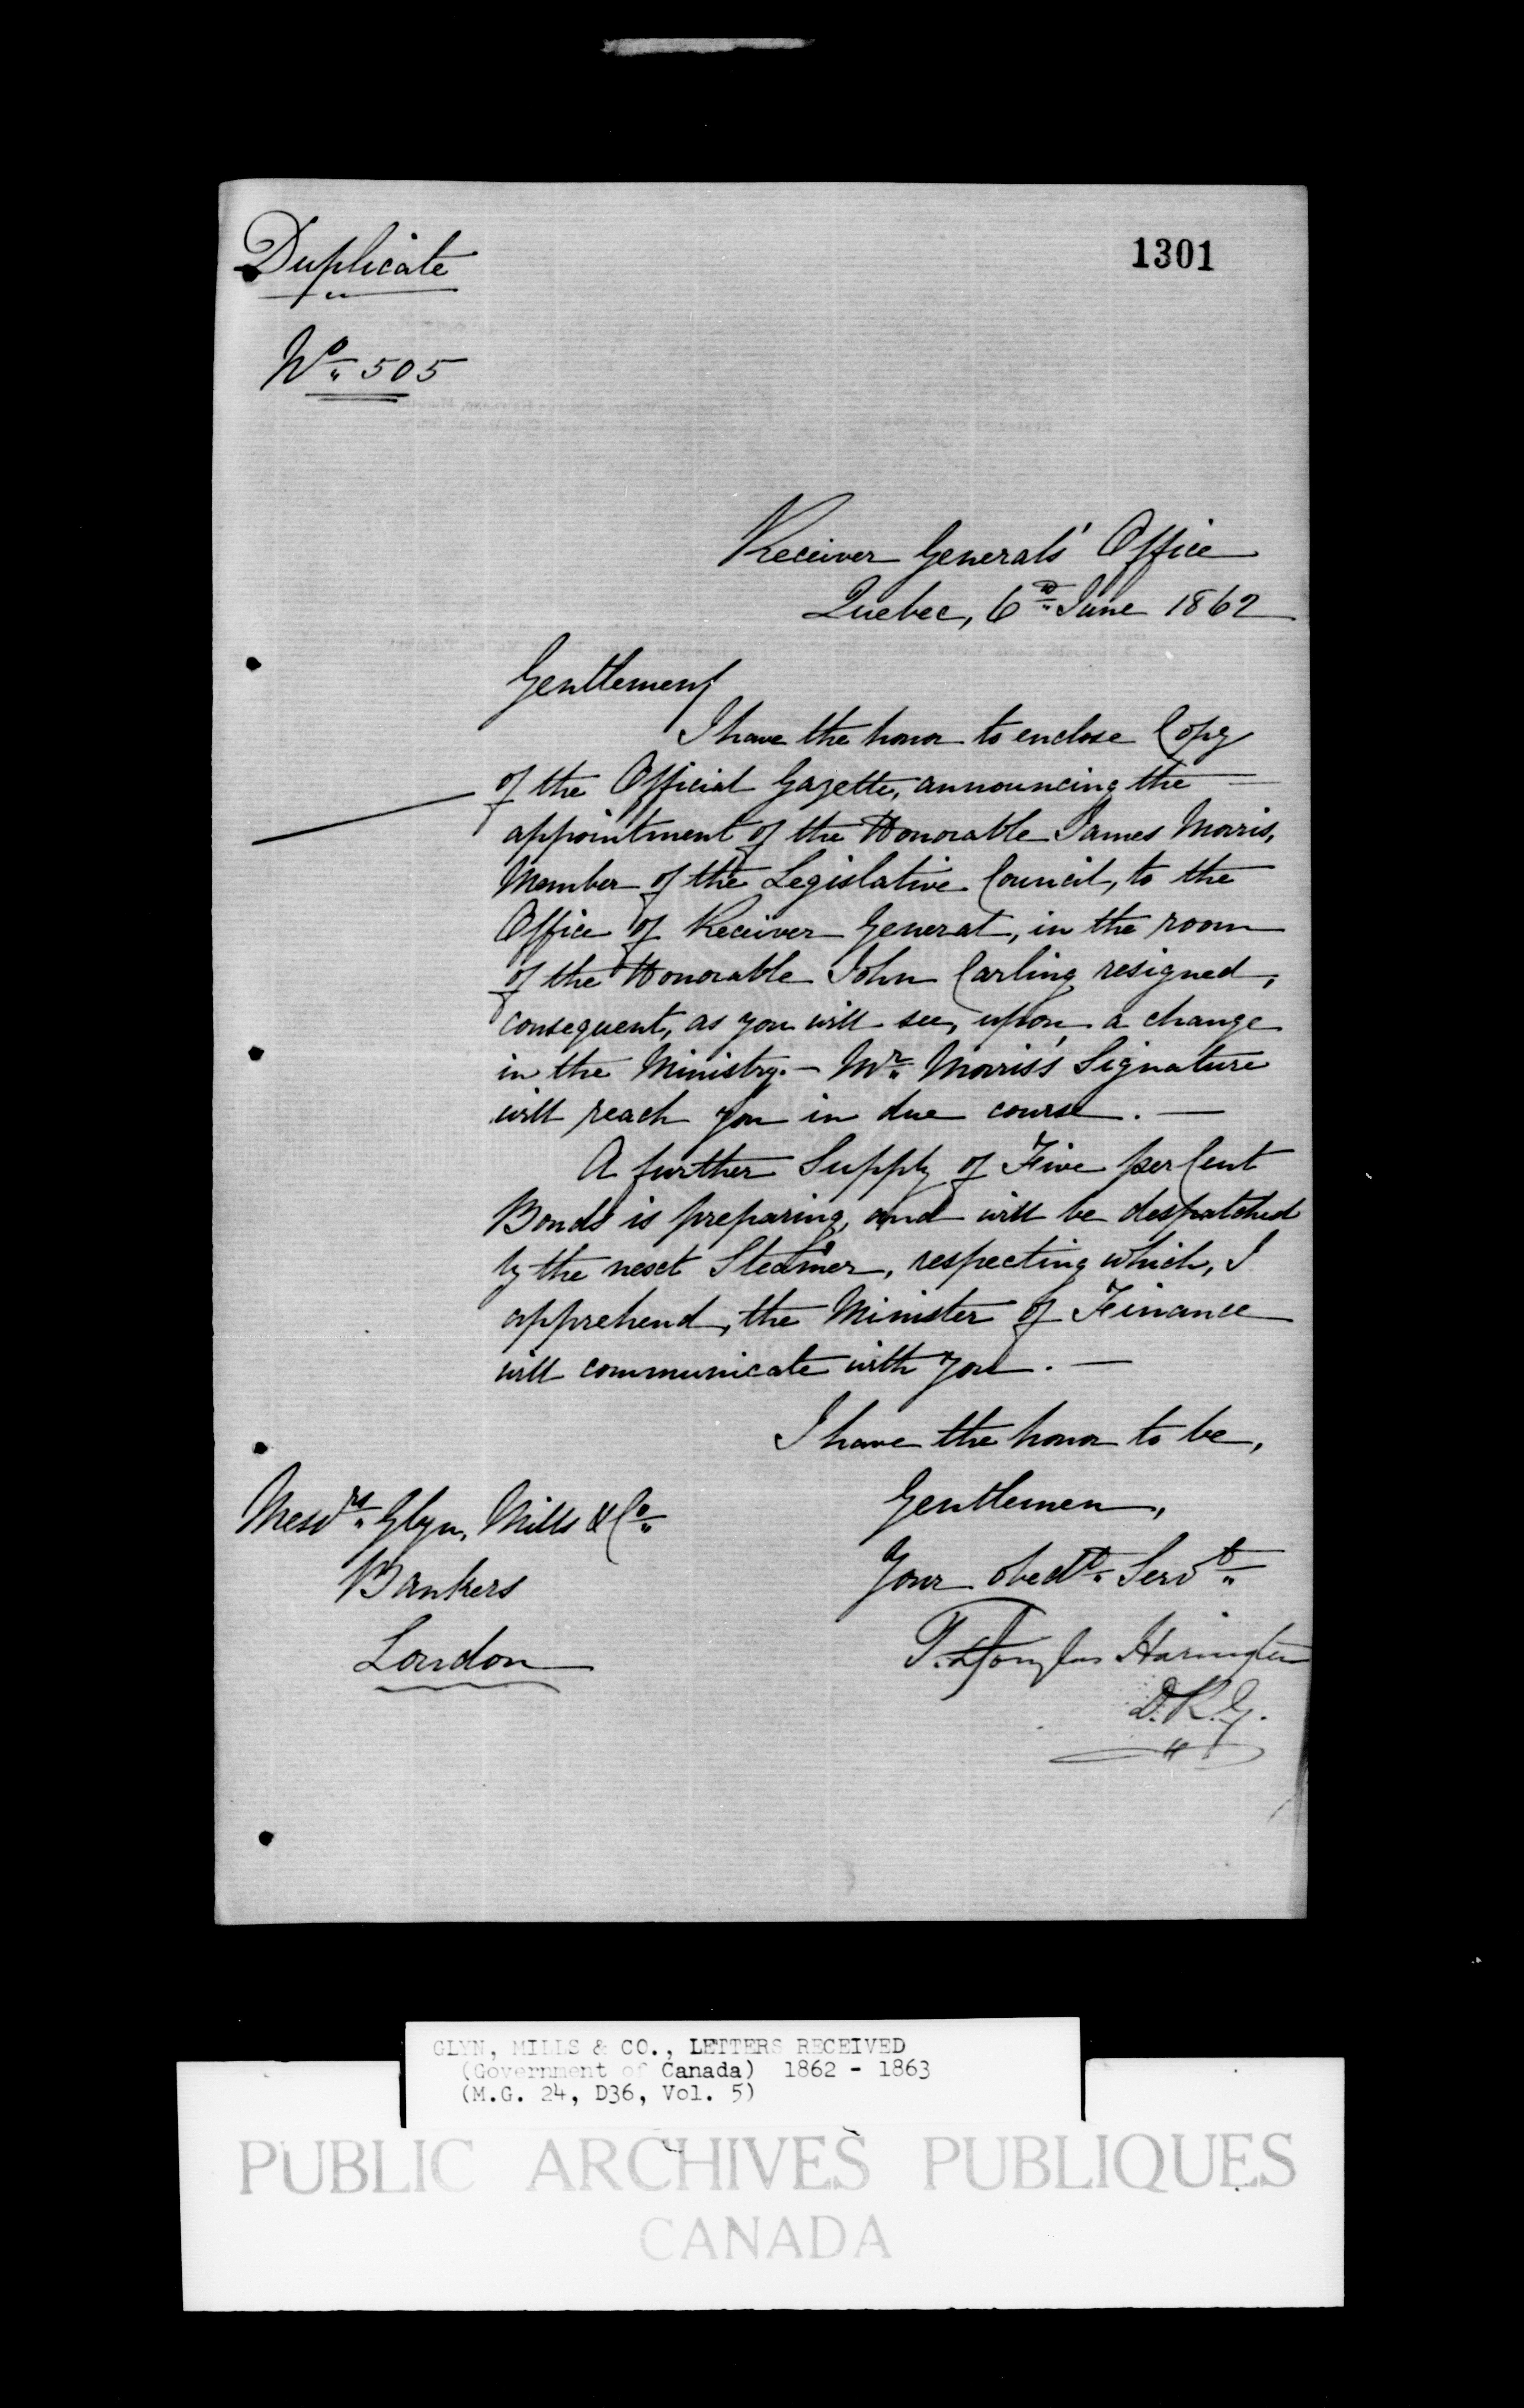 Duplicate
1301
No 505
Receiver Generals' Office
Quebec, 6th June 1862
Gentlemen,
I have the honor to enclose Copy
of the Official Gazette, announcing the
appointment of the Honorable James Morris,
Member of the Legislative Council, to the
Office of Receiver General, in the room
of the Honorable John Carling resigned,
consequent, as you will see, upon a change
in the Ministry. — Mr. Morris's Signature
will reach you in due course. —
A further Supply of Five per Cent
Bonds is preparing, and will be despatched
by the next Steamer, respecting which, I
apprehend, the Minister of Finance
will communicate with you. —
I have the honor to be,
Gentlemen,
Your obedt. Servt.
T. Douglas Harington
D.R.G.
Messrs. Glyn, Mills & Co.
Bankers
London
GLYN, MILLS & CO., LETTERS RECEIVED
(Government of Canada) 1862 - 1863
(M.G. 24, D36, Vol. 5)
PUBLIC ARCHIVES PUBLIQUES
CANADA